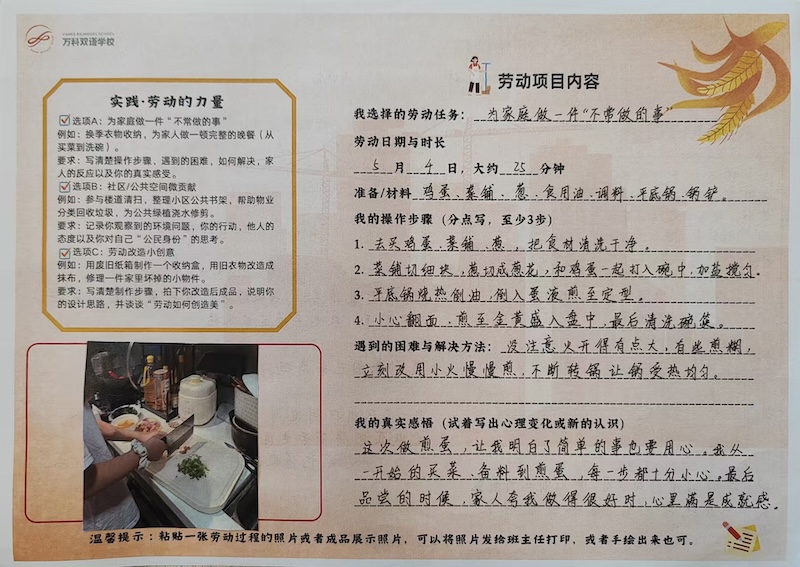 万科双语学校
实践·劳动的力量
选项A：为家庭做一件“不常做的事”
例如：换季衣物收纳，为家人做一顿完整的晚餐（从
买菜到洗碗）。
要求：写清楚操作步骤，遇到的困难，如何解决，家
人的反应以及你的真实感受。
选项B：社区/公共空间微贡献
例如：参与楼道清扫，整理小区公共书架，帮助物业
分类回收垃圾，为公共绿植浇水修剪。
要求：记录你观察到的环境问题，你的行动，他人的
态度以及你对自己“公民身份”的思考。
选项C：劳动改造小创意
例如：用废旧纸箱制作一个收纳盒，用旧衣物改造成
抹布，修理一件家里坏掉的小物件。
要求：写清楚制作步骤，拍下你改造后成品，说明你
的设计思路，并谈谈“劳动如何创造美”。
劳动项目内容
我选择的劳动任务：为家庭做一件“不常做的事”
劳动日期与时长
5月4日，大约25分钟
准备/材料 鸡蛋、菜铺、葱、食用油、调料、平底锅、锅铲。
我的操作步骤（分点写，至少3步）
1. 去买鸡蛋、菜铺、葱，把食材清洗干净。
2. 菜铺切细块，葱切成葱花，和鸡蛋一起打入碗中，加盐搅匀。
3. 平底锅烧热倒油，倒入蛋液煎至定型。
4. 小心翻面，煎至金黄盛入盘中，最后清洗碗筷。
遇到的困难与解决方法：没注意火开得有点大，有些煎糊，
立刻改用小火慢慢煎，不断转锅让锅受热均匀。
我的真实感悟（试着写出心理变化或新的认识）
这次做煎蛋，让我明白了简单的事也要用心。我从
一开始的买菜、备料到煎蛋，每一步都十分小心。最后
品尝的时候，家人夸我做得很好时，心里满是成就感。
温馨提示：粘贴一张劳动过程的照片或者成品展示照片，可以将照片发给班主任打印，或者手绘出来也可。